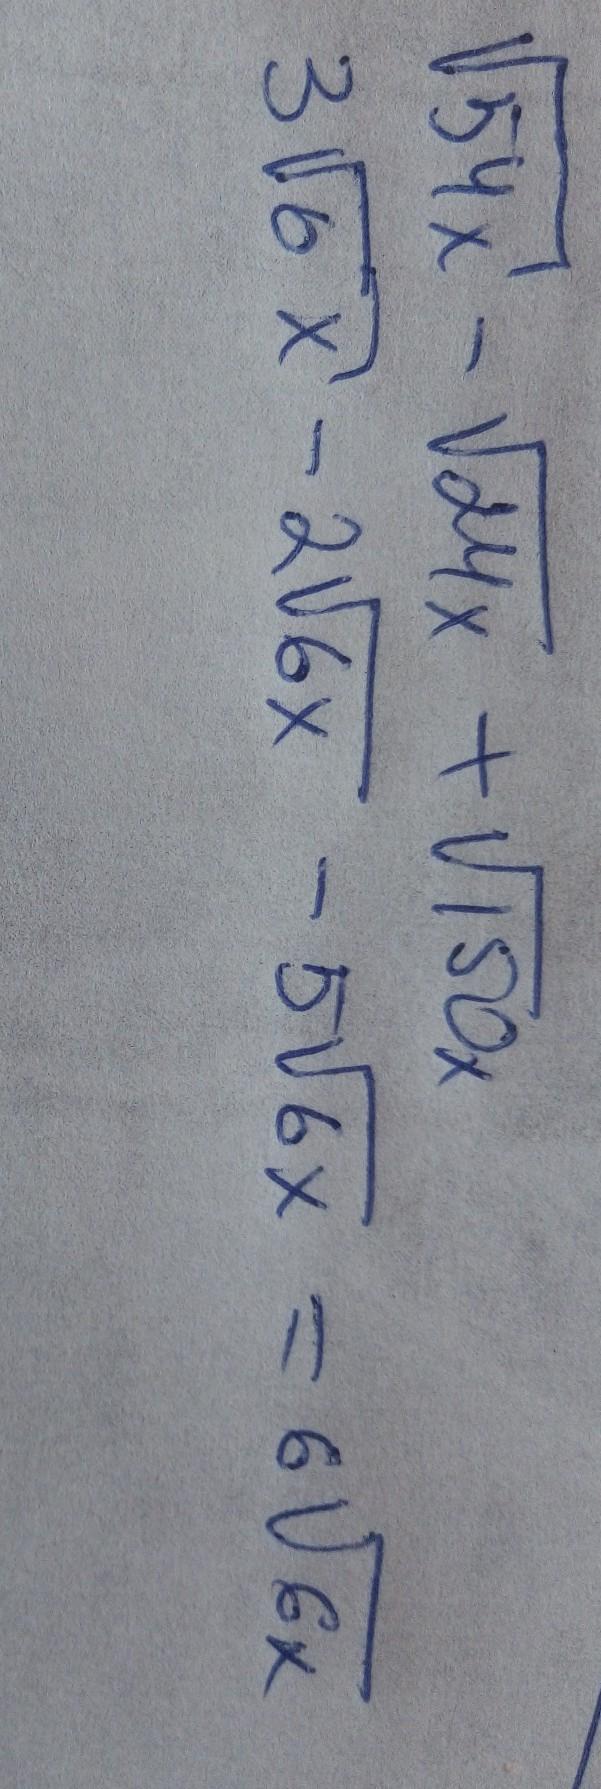 √54x - √24x + √150x
3√6x - 2√6x - 5√6x = 6√6x